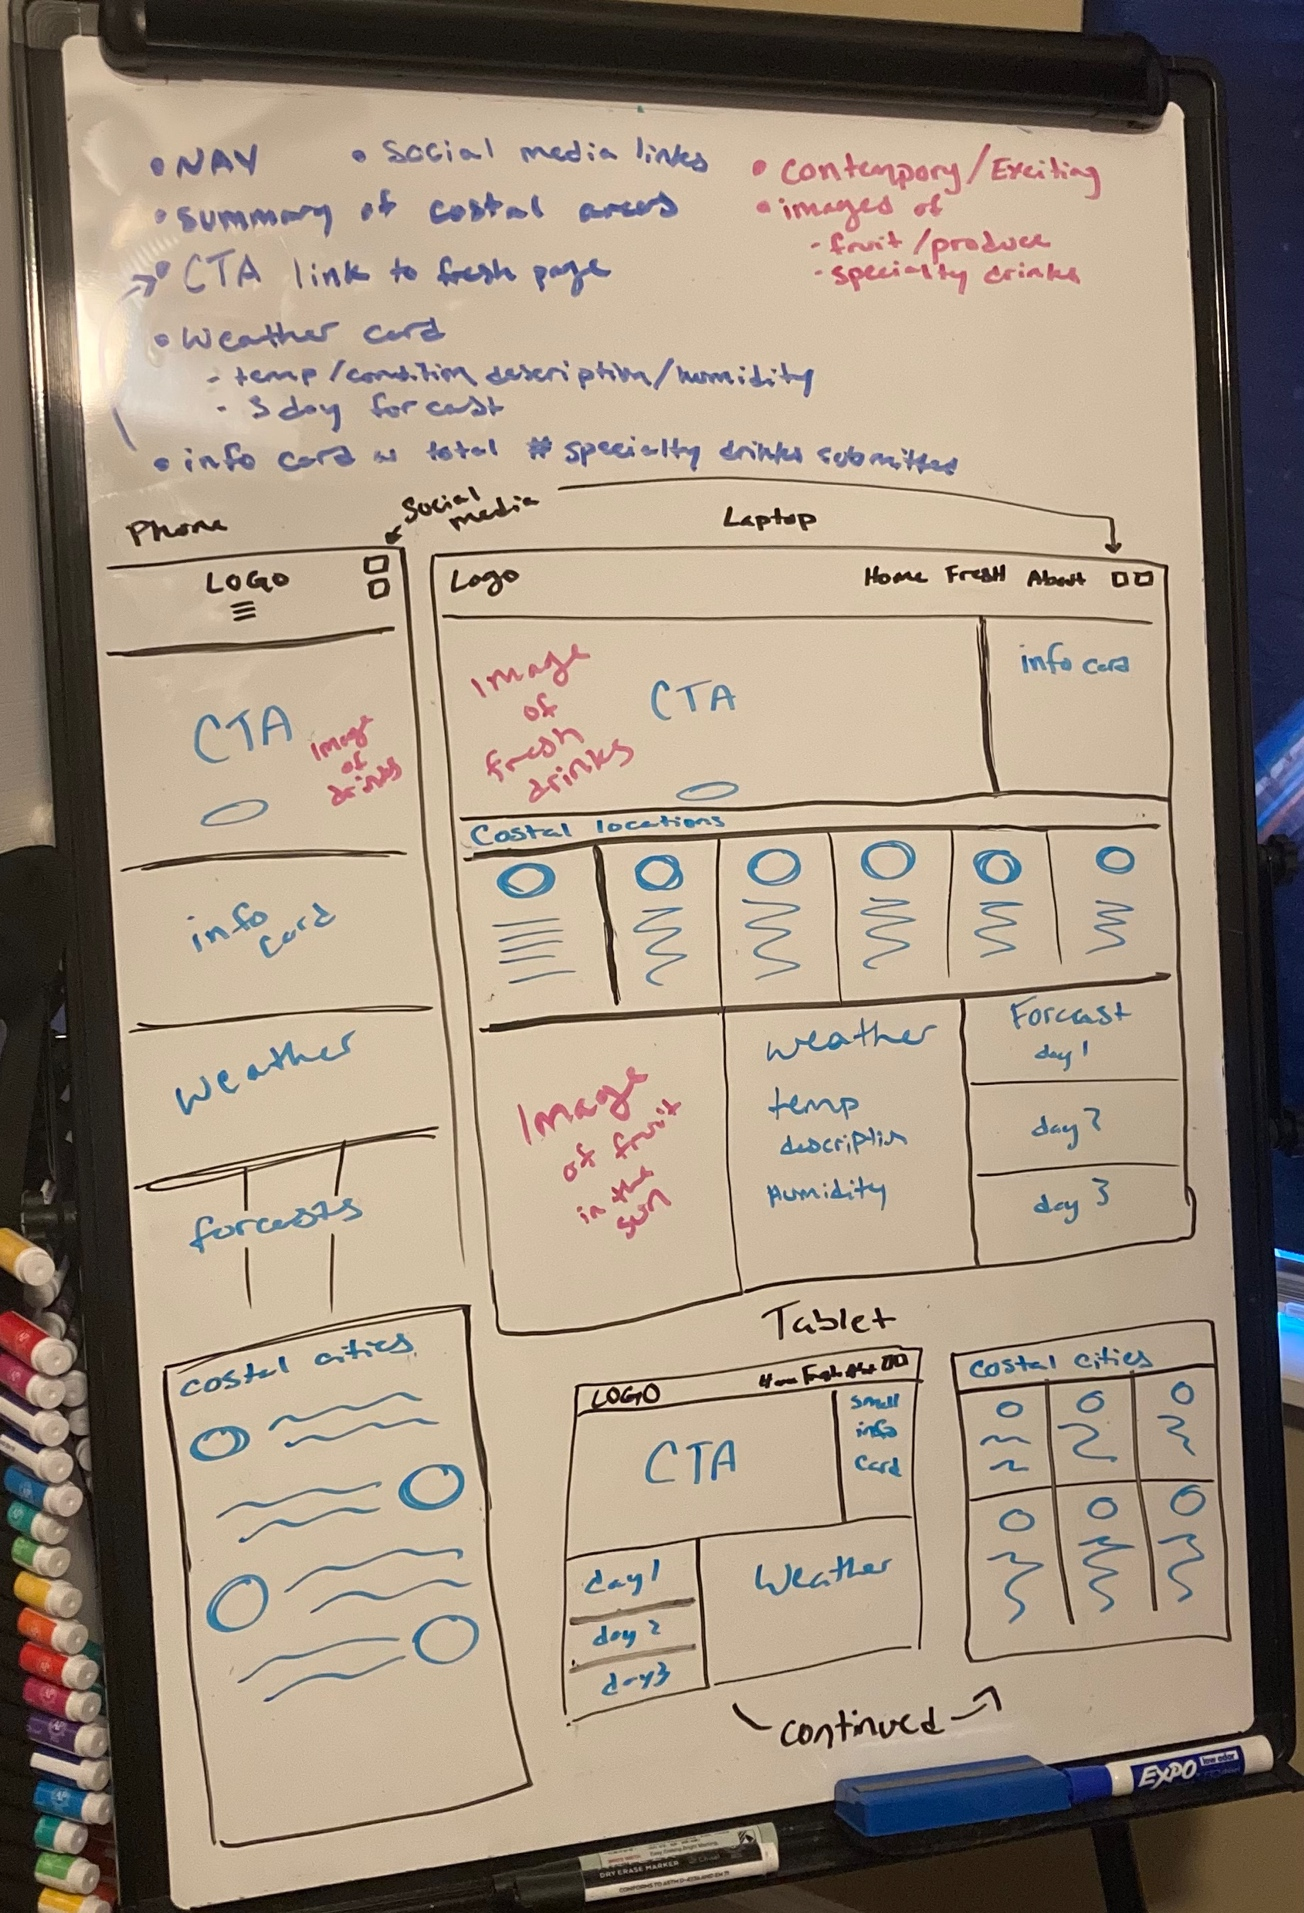 • NAV • Social media links
• summary of costal areas
• CTA link to fresh page
• Weather card
- temp/condition description/humidity
- 3 day forcast
• info card w total # specialty drinks submitted
• Contempory/Exciting
• images of
- fruit/produce
- specialty drinks
Social media
Phone
LOGO
CTA
Image
of
drinks
info
card
Weather
forcasts
costal cities
Laptop
Logo Home FresH About
Image
of
fresh
drinks
CTA
info card
Costal locations
Image
of fruit
in the
sun
weather
temp
description
Humidity
Forcast
day 1
day 2
day 3
Tablet
LOGO Home Fresh Abt
CTA
small
info
card
day 1
day 2
day3
Weather
continued
costal cities
EXPO
low odor
DRY ERASE MARKER
CONFORMS TO ASTM D-4236